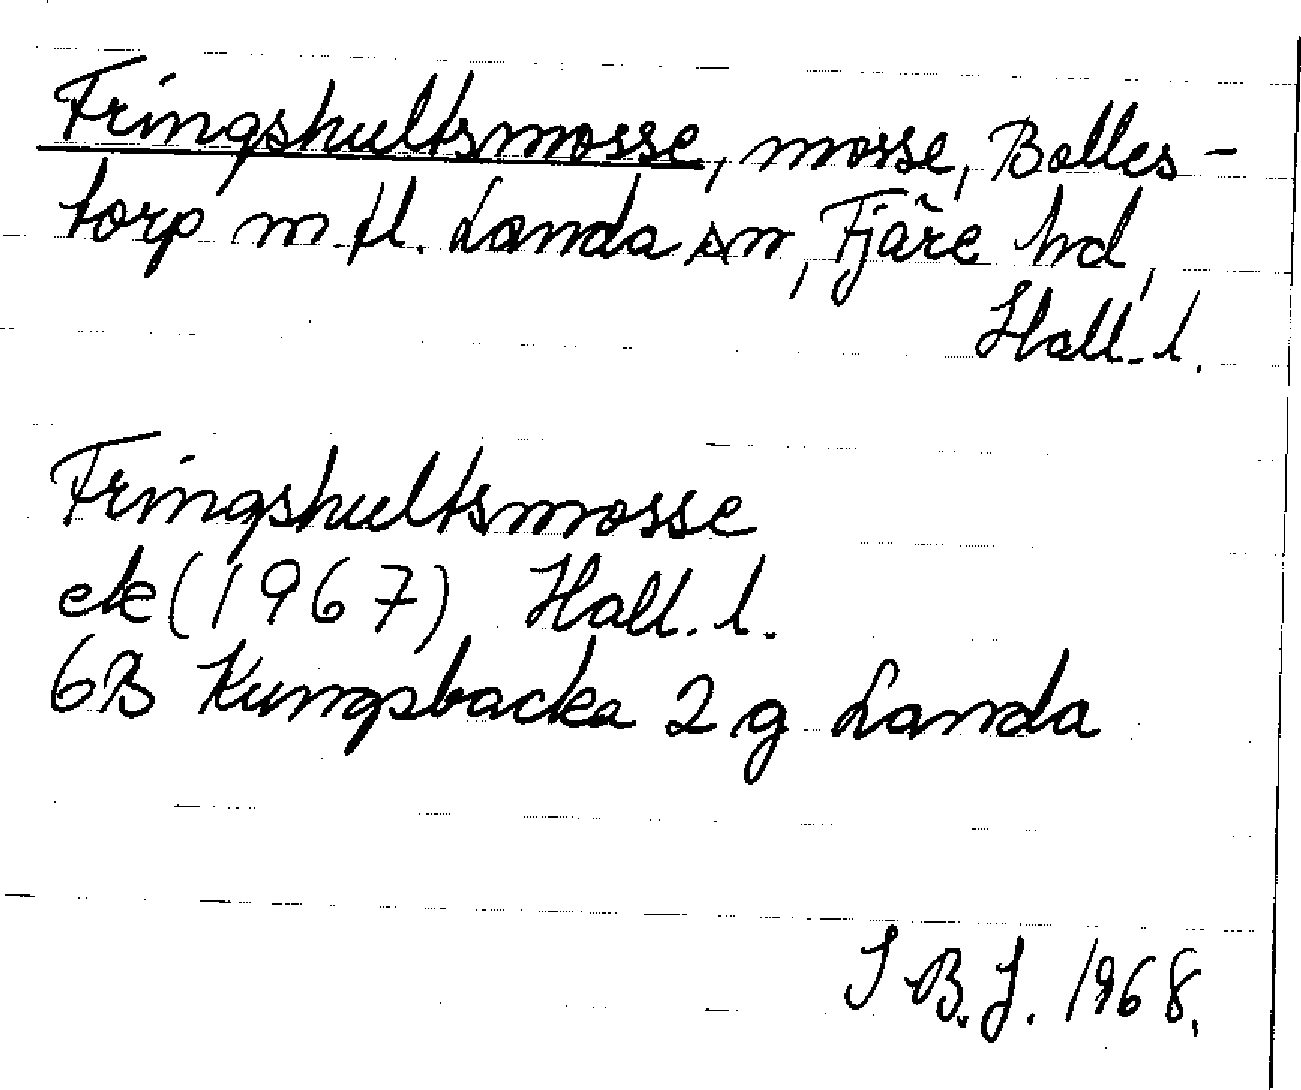 Fringshultsmosse, mosse, Bolles-
torp m fl. Landa sn, Fjäre hd,
Hall. l.
Fringshultsmosse
ek (1967) Hall. l.
6B Kungsbacka 2 g Landa
S B. J. 1968.